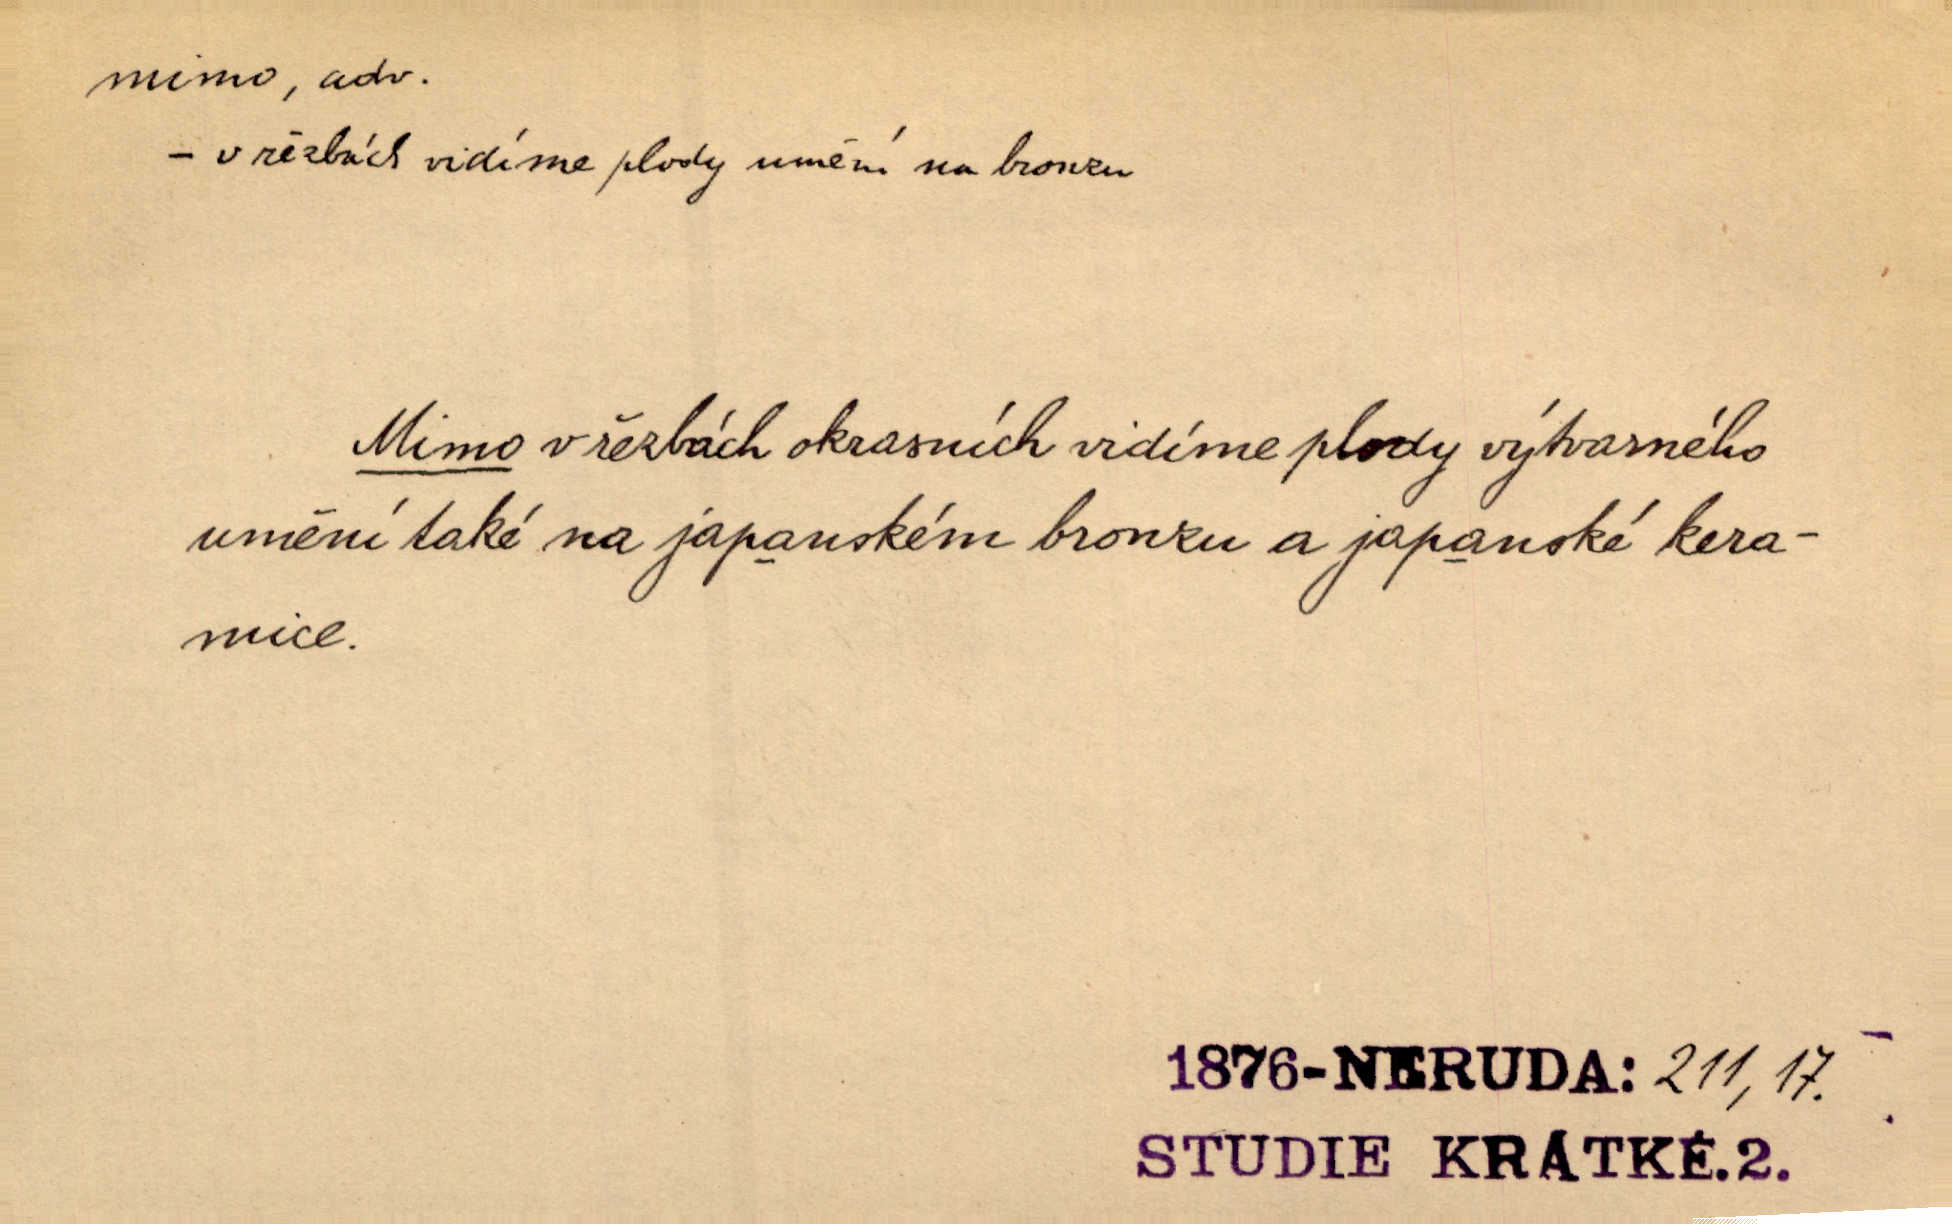 mimo, adv.
– v řězbách vidíme plody umění na bronzu
Mimo v řězbách okrasních vidíme plody výtvarného
umění také na japanském bronzu a japanské kera-
mice.
1876-NERUDA: 211, 17.
STUDIE KRÁTKÉ.2.